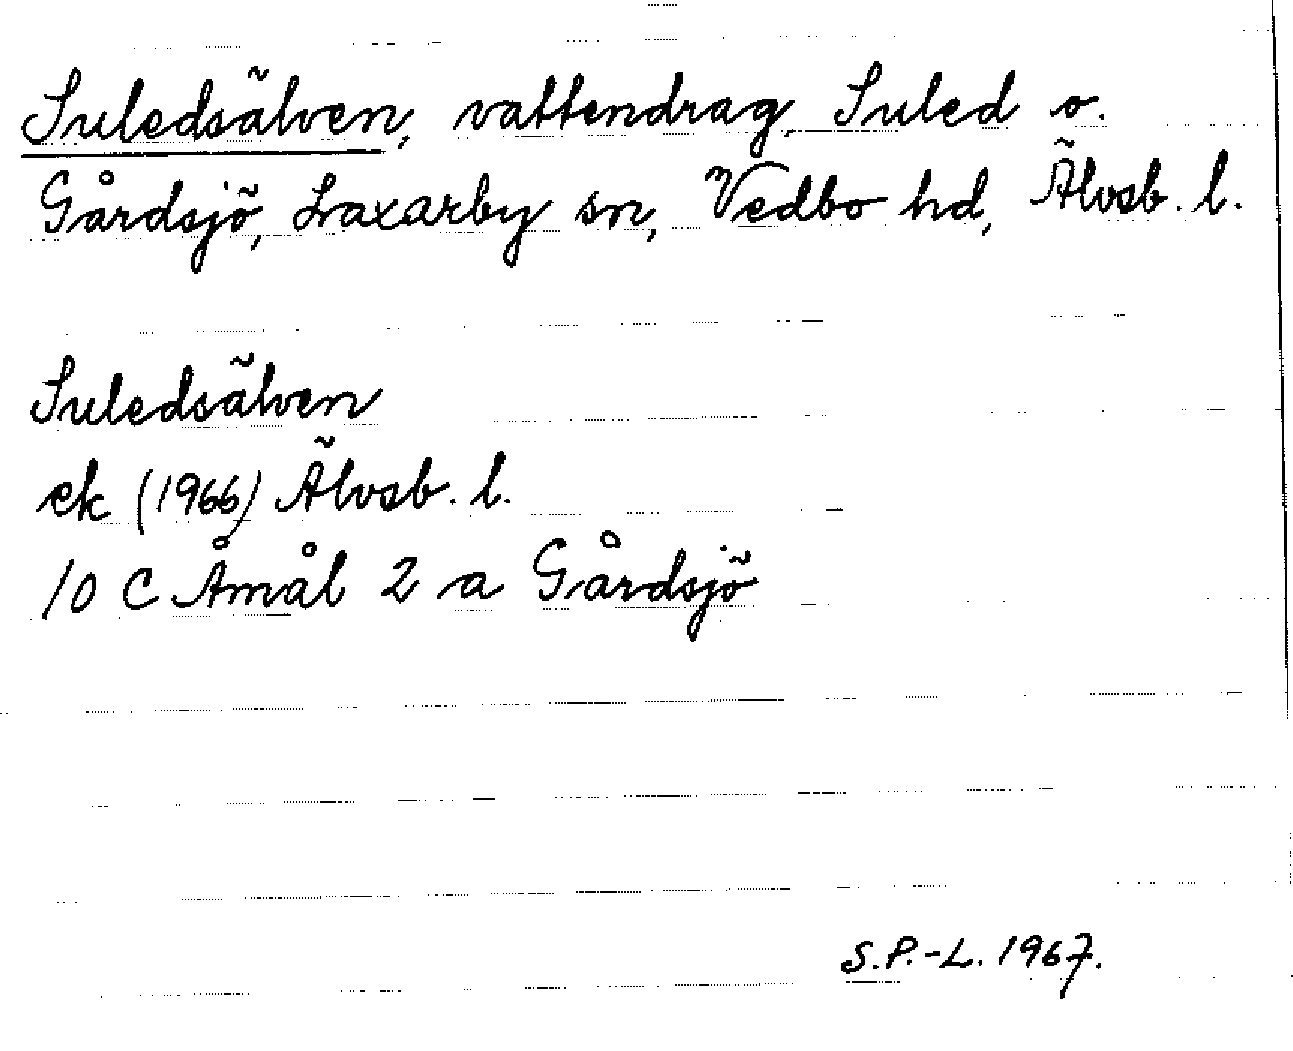 Suledsälven, vattendrag, Suled o.
Gårdsjö, Laxarby sn, Vedbo hd, Älvsb. l.
Suledsälven
ek (1966) Älvsb. l.
10 C Åmål 2 a Gårdsjö
S.P.-L. 1967.